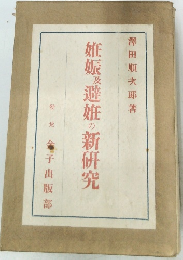 澤田順次郎著
妊娠及避妊の新研究
東京 金子出版部